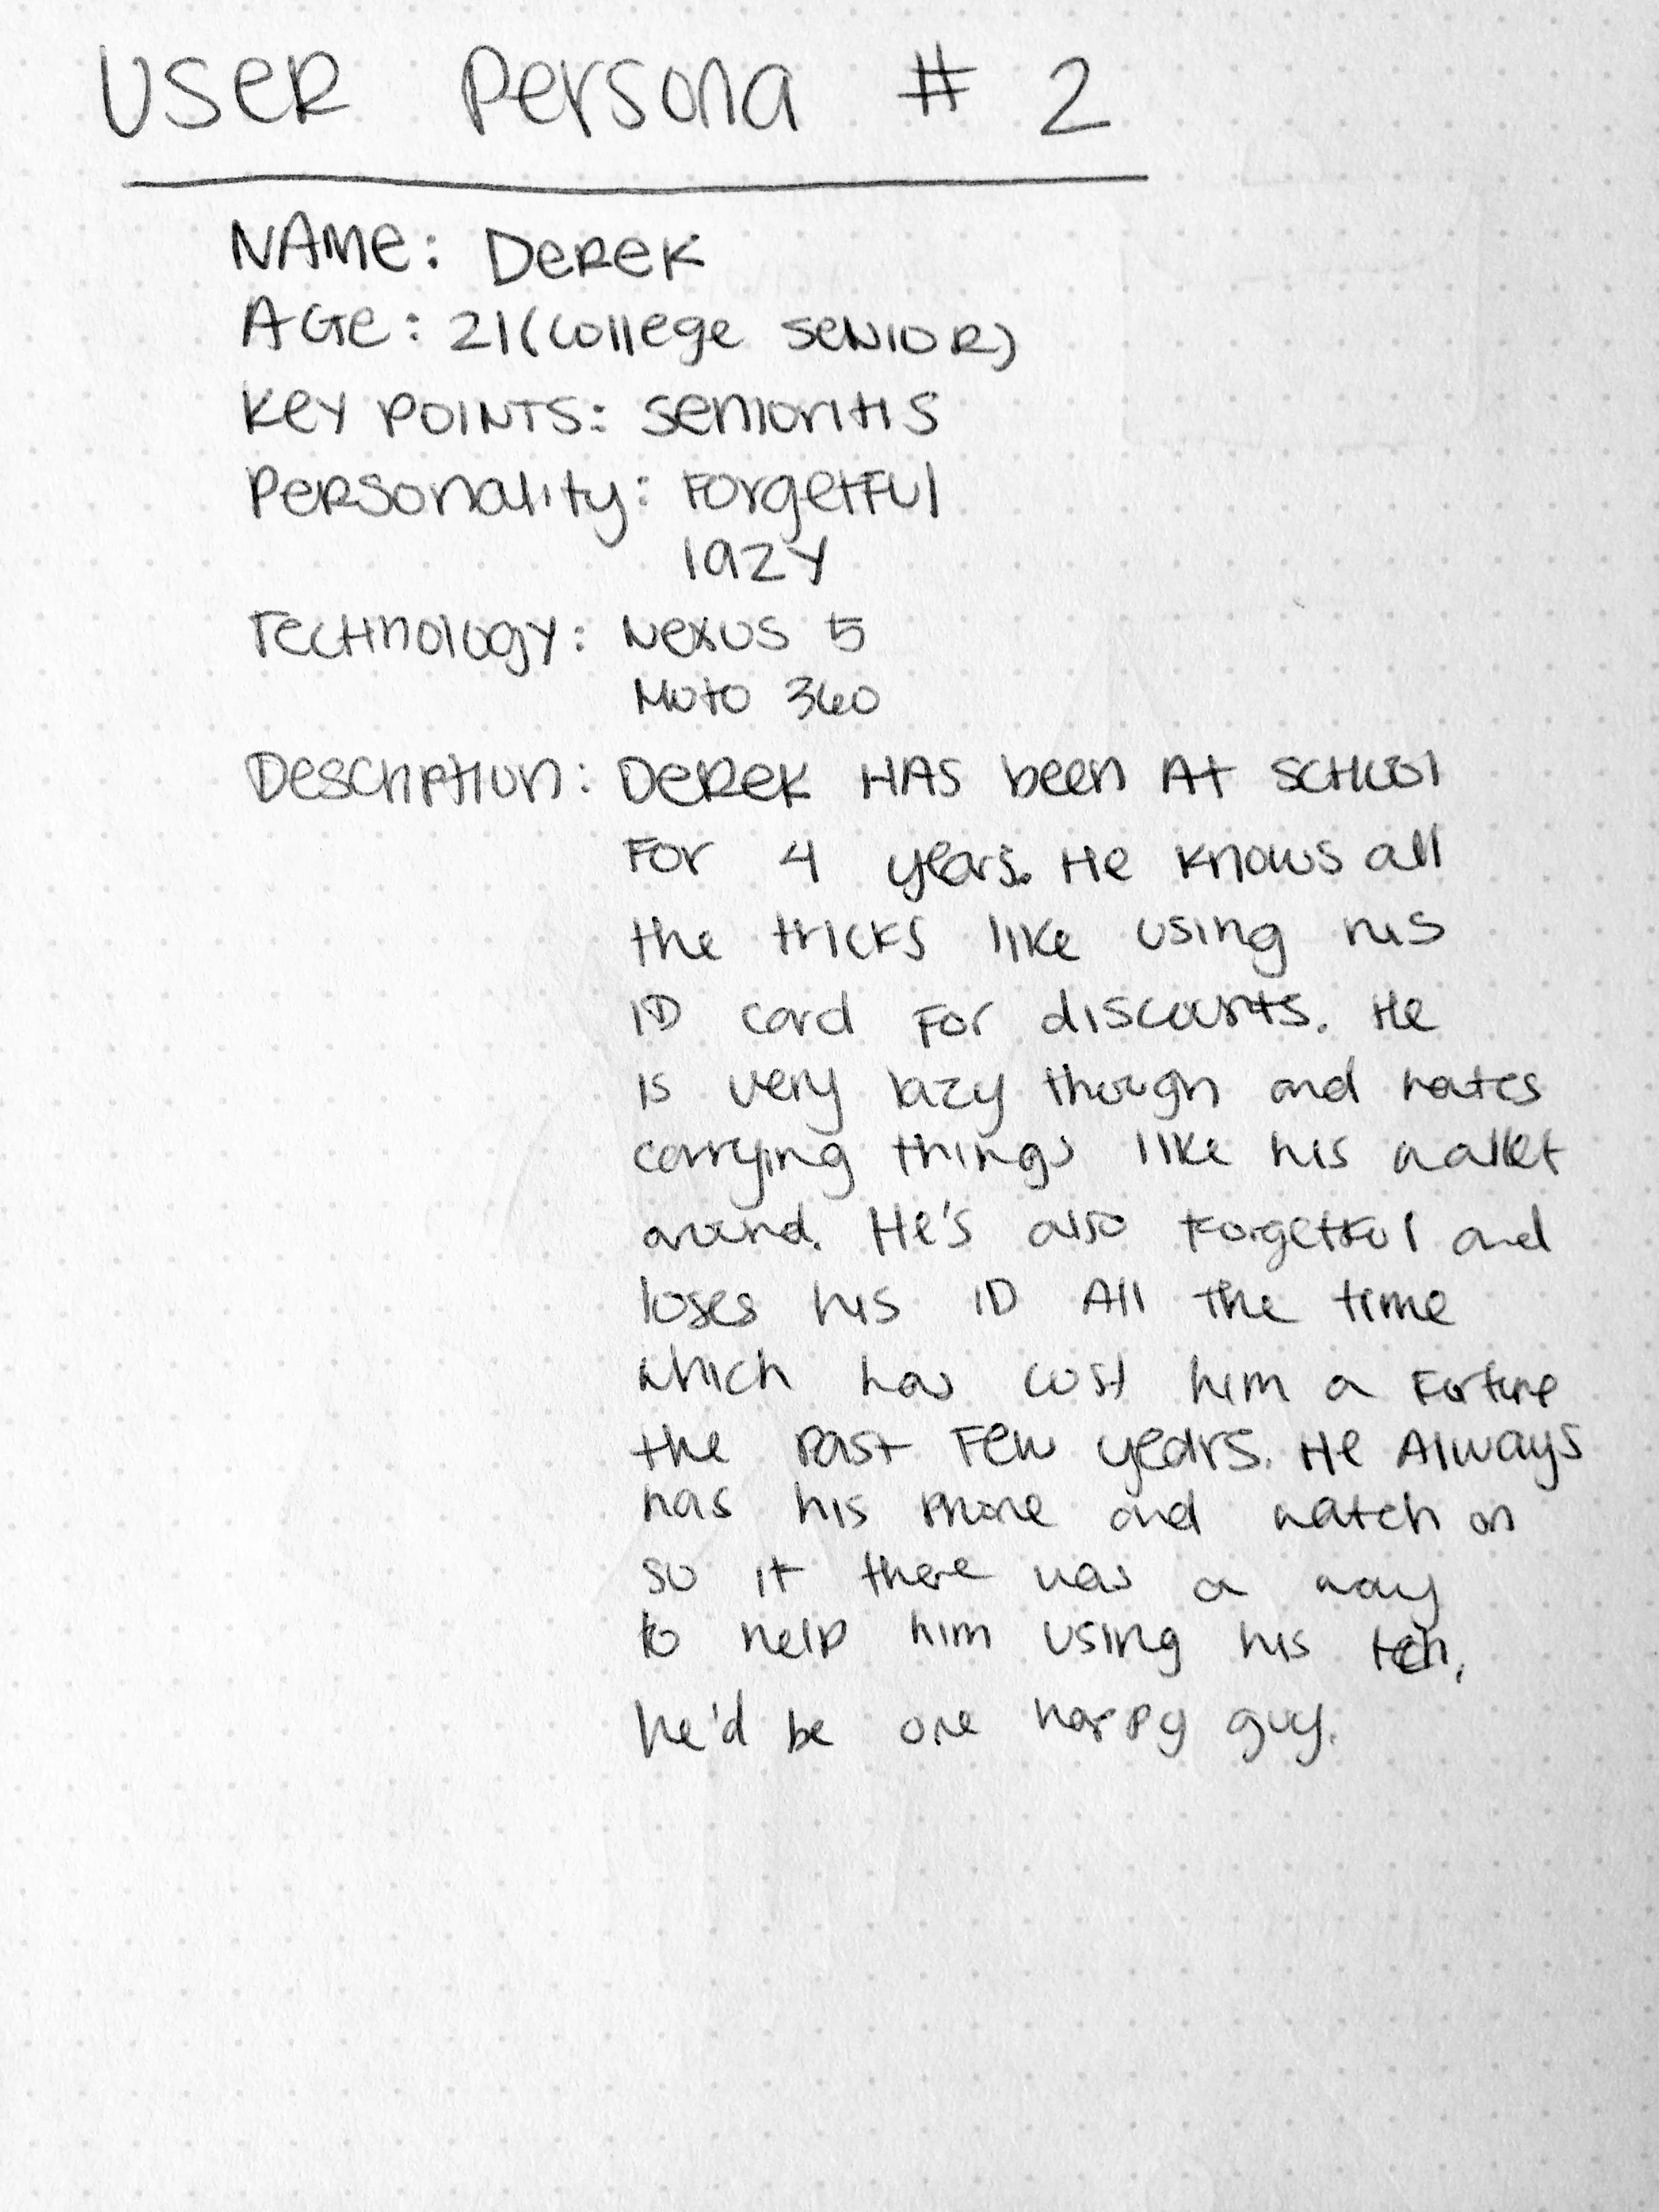 User Persona # 2
Name: Derek
Age: 21 (college senior)
Key Points: senioritis
Personality: Forgetful
lazy
Technology: Nexus 5
Moto 360
Description: Derek has been at school
for 4 years. He knows all
the tricks like using his
ID card for discounts. He
is very lazy though and hates
carrying things like his wallet
around. He's also forgetful and
loses his ID all the time
which has cost him a fortune
the past few years. He always
has his phone and watch on
so if there was a way
to help him using his tech,
he'd be one happy guy.